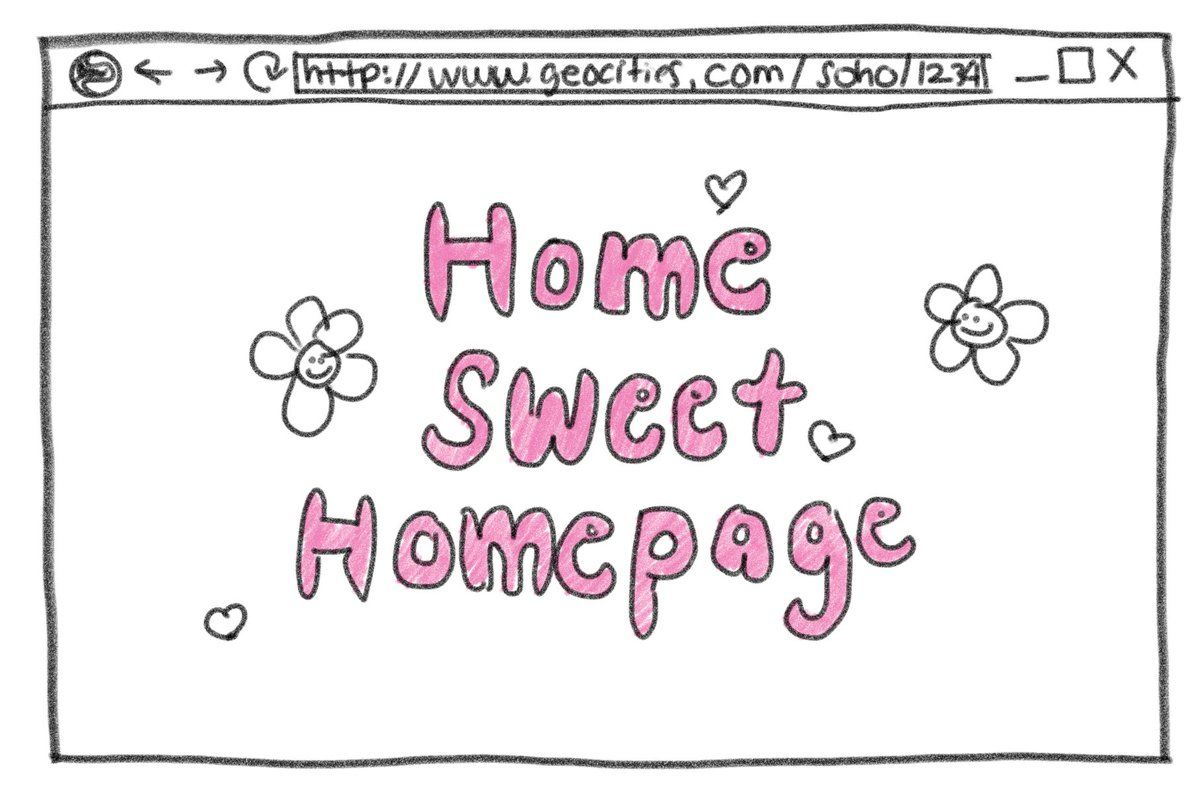 http://www.geocities.com/soho/1234
Home
Sweet
Homepage